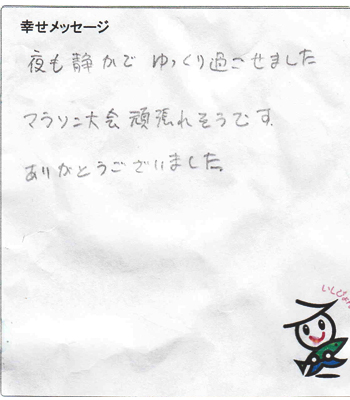 幸せメッセージ
夜も静かで ゆっくり過ごせました
マラソン大会頑張れそうです.
ありがとうございました。